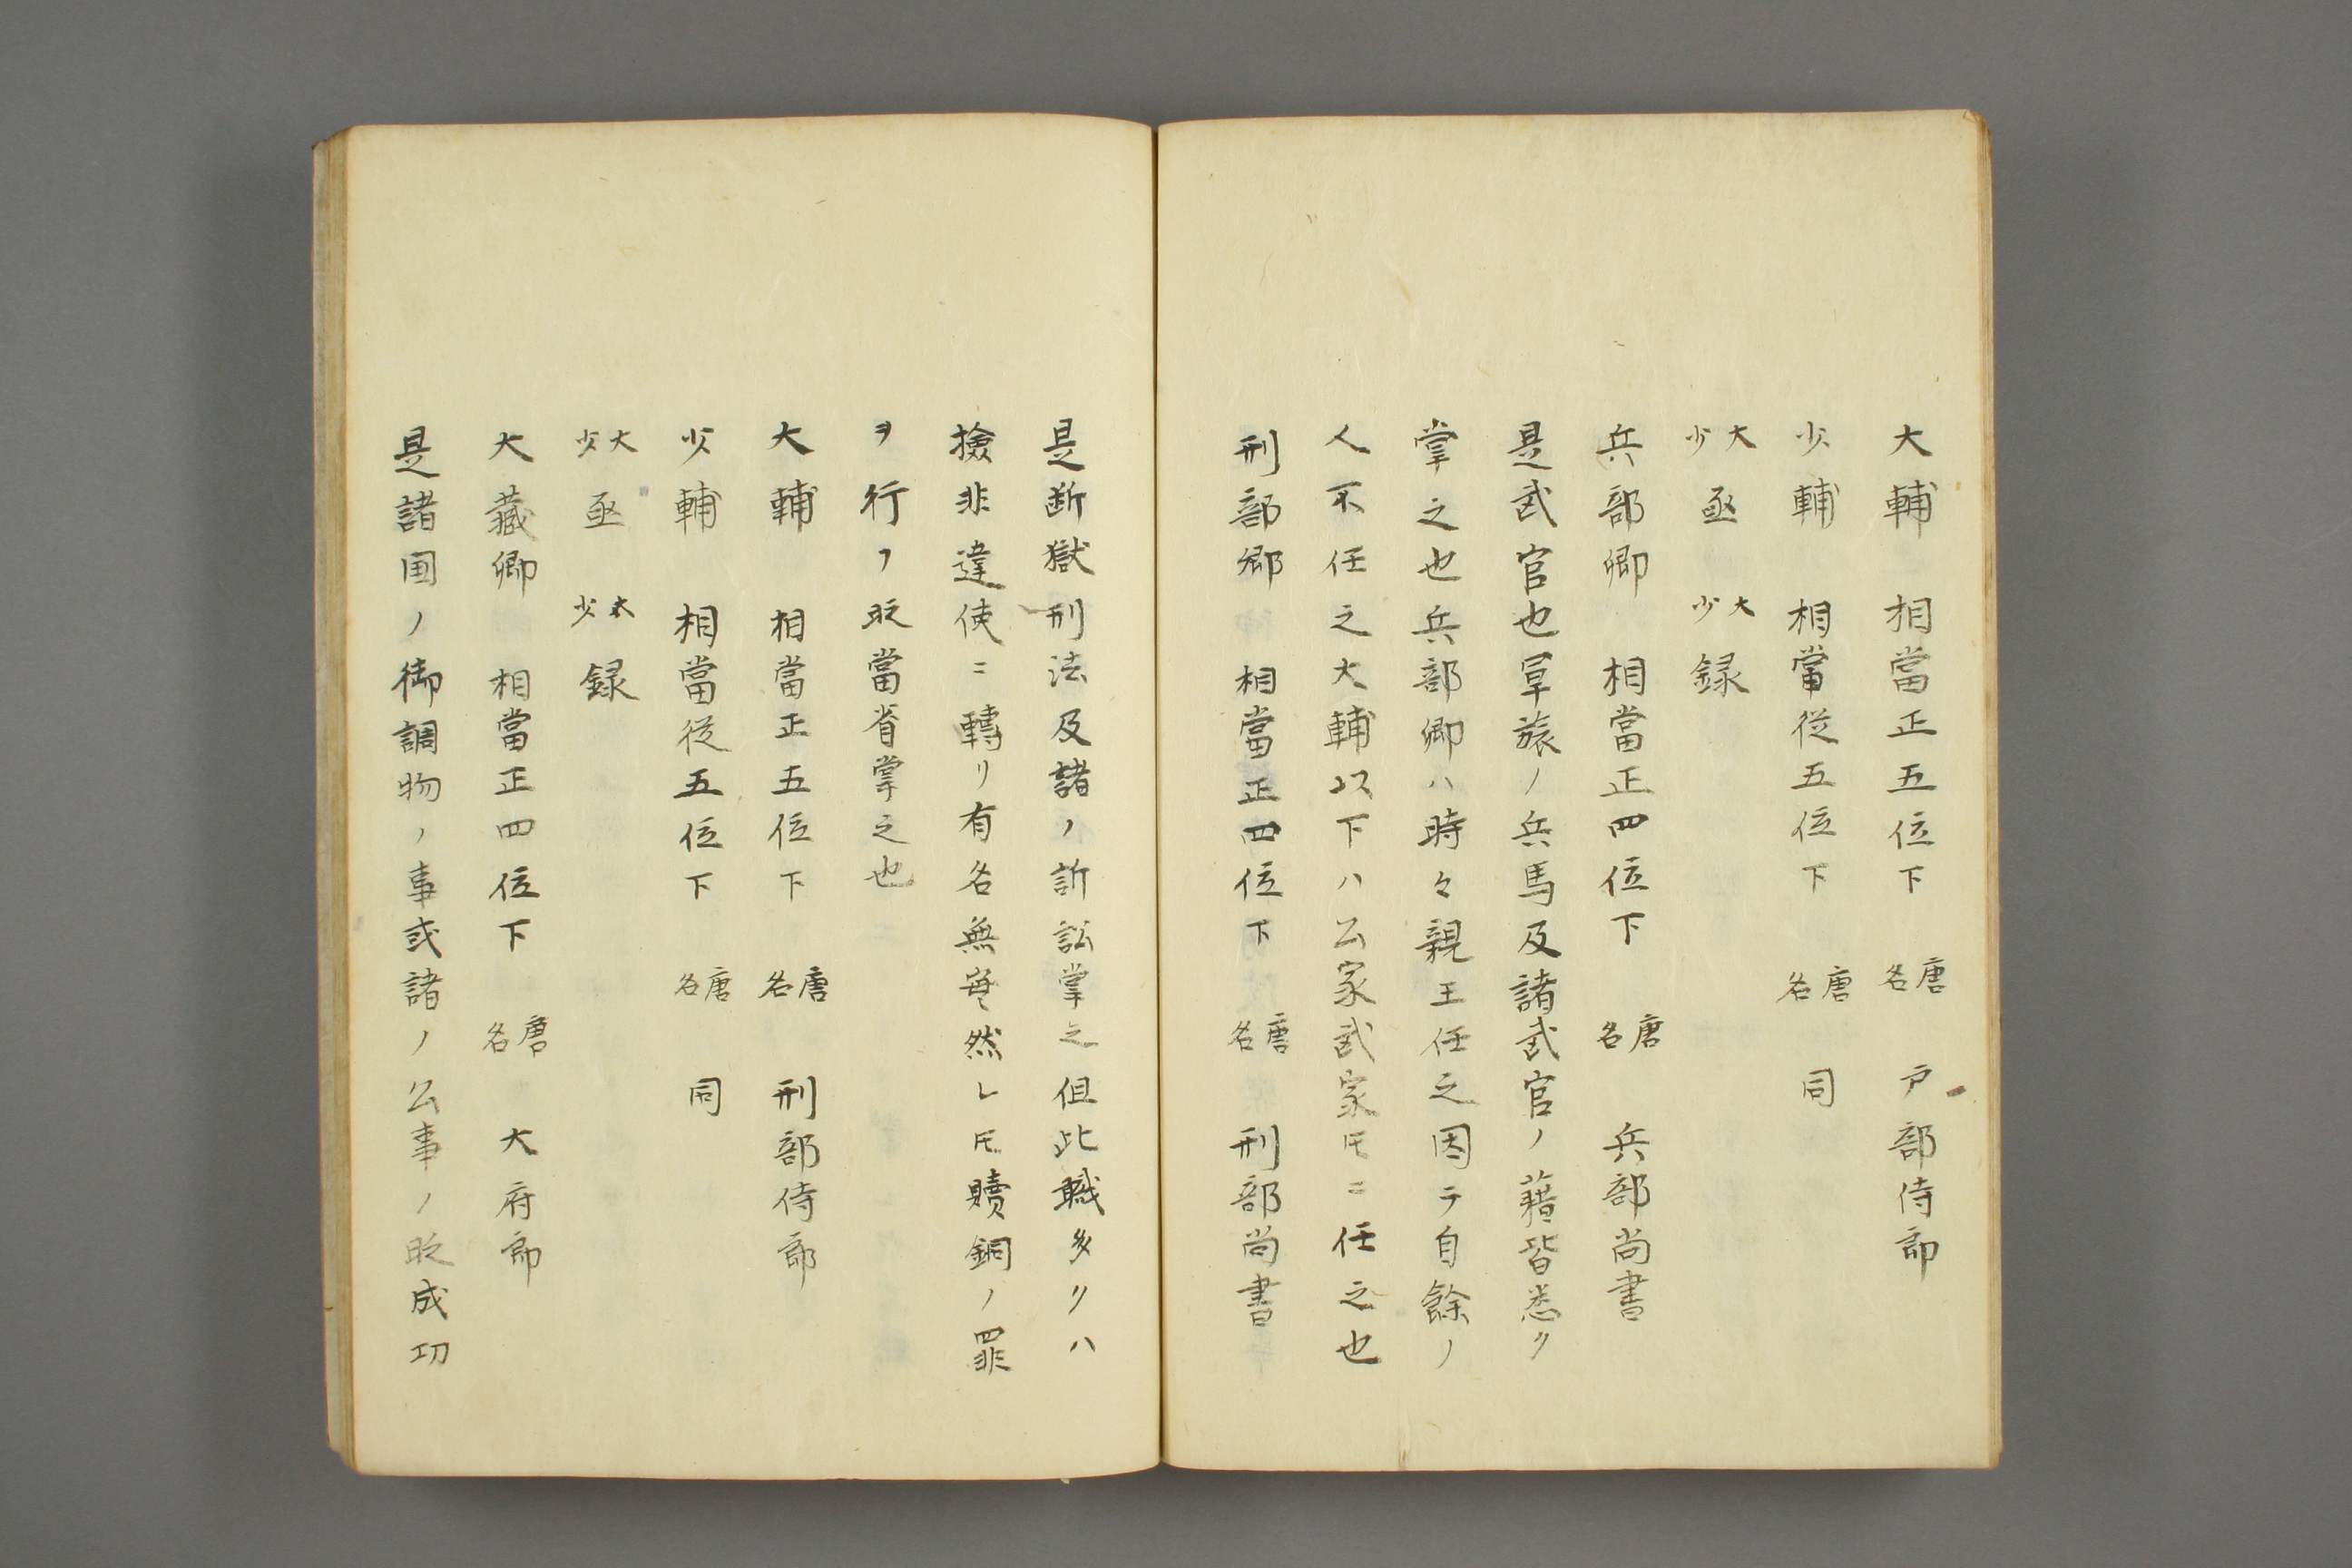 大輔 相當正五位下 唐名 戸部侍郎
少輔 相當従五位下 唐名 同
大少丞 大少録
兵部卿 相當正四位下 唐名 兵部尚書
是武官也軍旅ノ兵馬及諸武官ノ藉皆悉ク
掌之也兵部卿ハ時々親王任之因テ自餘ノ
人不任之大輔以下ハ公家武家𪜈ニ任之也
刑部卿 相當正四位下 唐名 刑部尚書
是断獄刑法及諸ノ訴訟掌之但此職多クハ
撿非違使ニ轉リ有名無実然レ𪜈贖銅ノ罪
ヲ行フ㪽當省掌之也
大輔 相當正五位下 唐名 刑部侍郎
少輔 相當従五位下 唐名 同
大少丞 大少録
大藏卿 相當正四位下 唐名 大府卿
是諸国ノ御調物ノ事或諸ノ公事ノ㪽成功